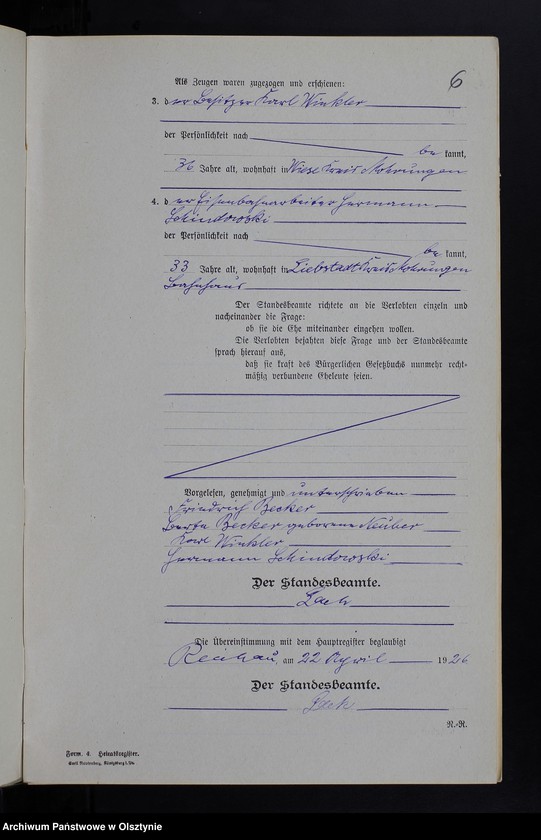 6
Als Zeugen waren zugezogen und erschienen:
3. der Besitzer Karl Winkler
der Persönlichkeit nach
be kannt,
36 Jahre alt, wohnhaft in Wiese Kreis Mohrungen
4. der Eisenbahnarbeiter Hermann
Schindowski
der Persönlichkeit nach
be kannt,
33 Jahre alt, wohnhaft in Liebstadt Kreis Mohrungen
Bahnhaus
Der Standesbeamte richtete an die Verlobten einzeln und
nacheinander die Frage:
ob sie die Ehe miteinander eingehen wollen.
Die Verlobten bejahten diese Frage und der Standesbeamte
sprach hierauf aus,
daß sie kraft des Bürgerlichen Gesetzbuchs nunmehr recht-
mäßig verbundene Eheleute seien.
Vorgelesen, genehmigt und unterschrieben
Friedrich Becker
Berta Becker geborene Neuber
Karl Winkler
Hermann Schindowski
Der Standesbeamte.
Lach
Die Übereinstimmung mit dem Hauptregister beglaubigt
Reichau, am 22 April 1926
Der Standesbeamte.
Lach
R.-R.
Form. 4. Heiratsregister.
Archiwum Państwowe w Olsztynie